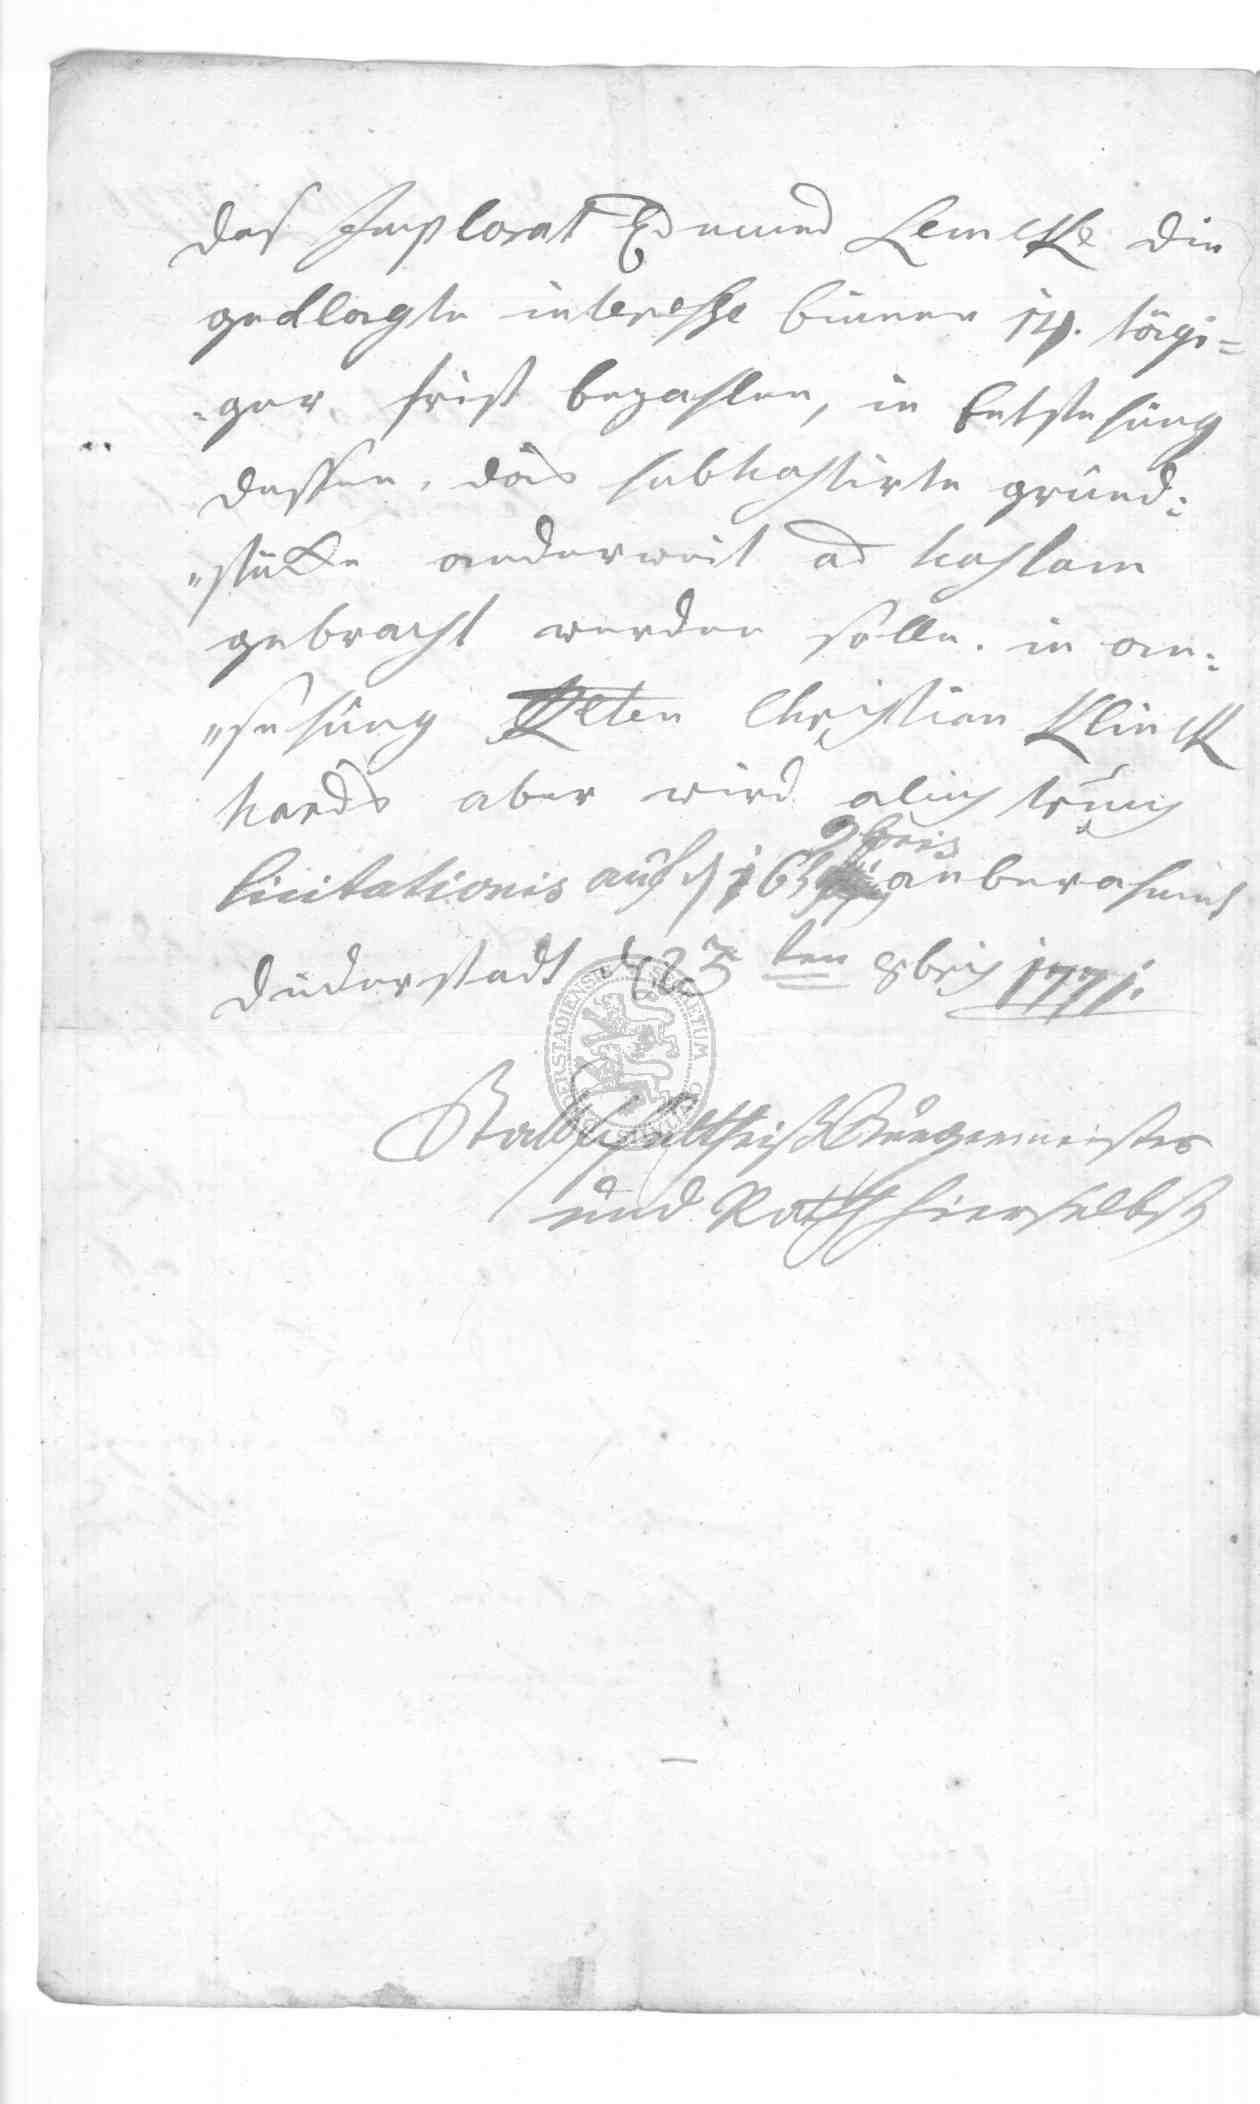 daß Implorat Edmund Lemcke die
geklagte interesse binnen 14. tägi=
=ger frist bezahlen, in Entstehung
dessen, das subhastirte grund=
"stücke anderweit ad hastam
gebracht werden solle. in an=
"sehung Klten Christian Klinck
hards aber wird alius trnus
licitationis auf d 16 9bris anberahmet
Duderstadt d 23ten 8bris 1771.
Stadtschultheiß Bürgermeister
und Rath hierselbst